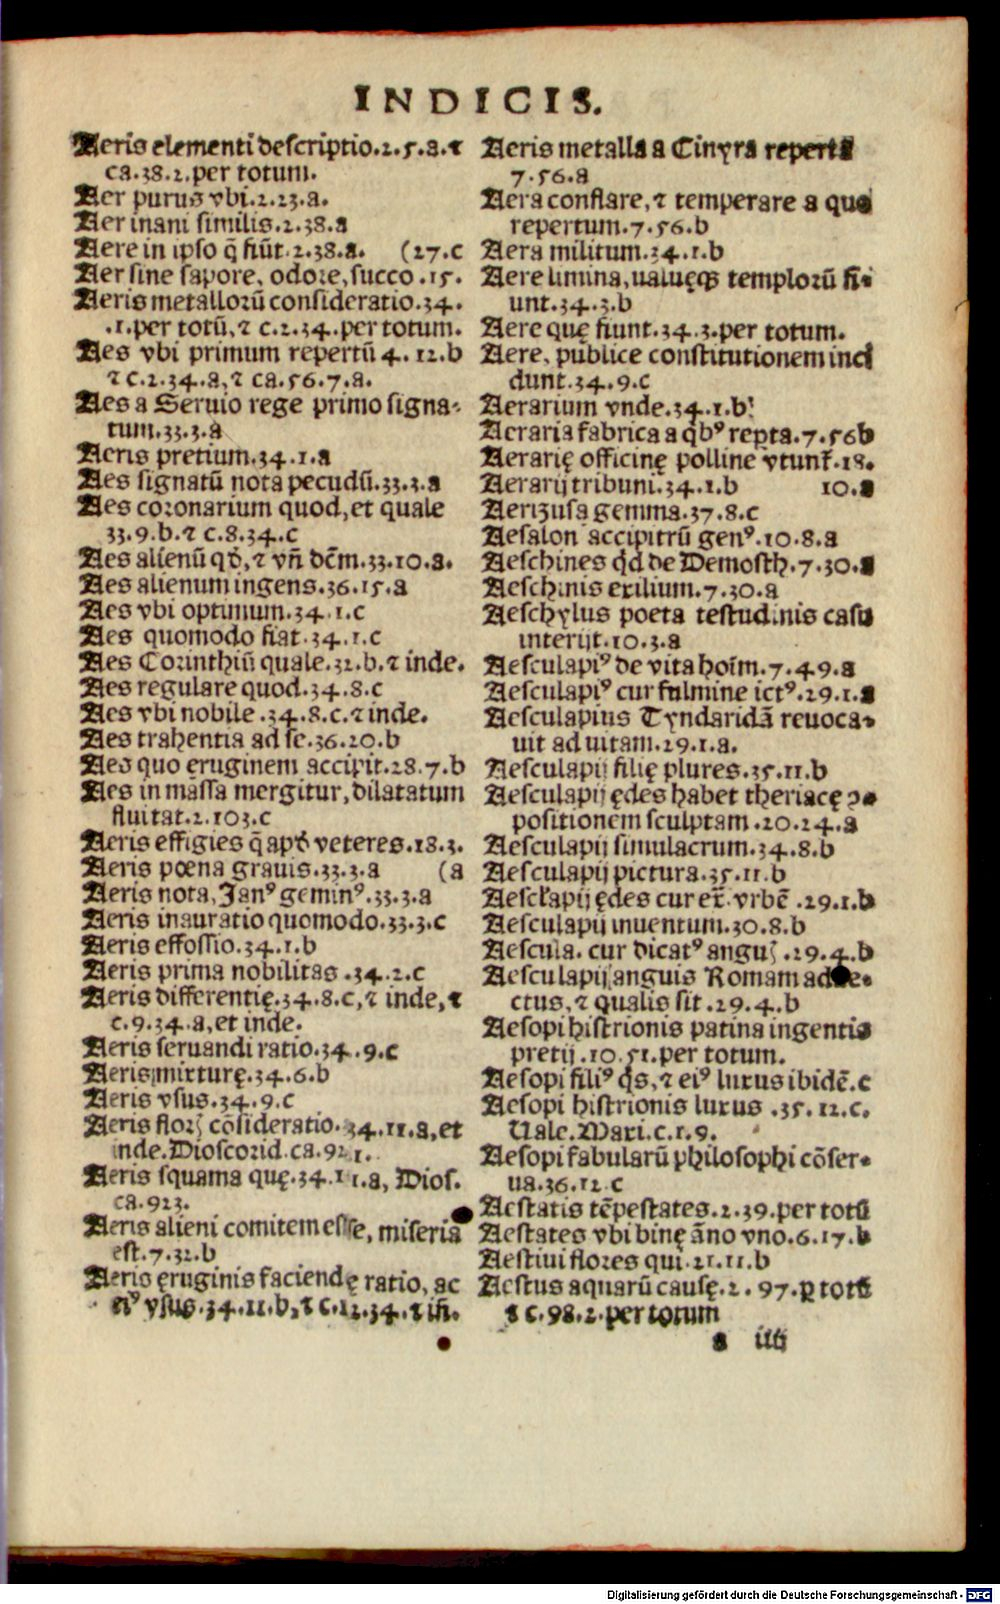 INDICIS.
Aeris elementi descriptio.2.5.a.⁊
ca.38.2.per totum.
Aer purus vbi.2.23.a.
Aer inani similis.2.38.a
Aere in ipso q̄ fiūt.2.38.a. (27.c
Aer sine sapore, odore, succo.15.
Aeris metallorū consideratio.34.
.1.per totū,⁊ c.2.34.per totum.
Aes vbi primum repertū 4.12.b
⁊ c.2.34.a,⁊ ca.56.7.a.
Aes a Seruio rege primo signa-
tum.33.3.a
Aeris pretium.34.1.a
Aes signatū nota pecudū.33.3.a
Aes coronarium quod, et quale
33.9.b.⁊ c.8.34.c
Aes alienū qđ, ⁊ vñ dc̄m.33.10.a.
Aes alienum ingens.36.15.a
Aes vbi optimum.34.1.c
Aes quomodo fiat.34.1.c
Aes Corinthiū quale.32.b.⁊ inde.
Aes regulare quod.34.8.c
Aes vbi nobile.34.8.c.⁊ inde.
Aes trahentia ad se.36.20.b
Aes quo ęruginem accipit.28.7.b
Aes in māssa mergitur, dilatatum
fluitat.2.103.c
Aeris effigies q̄ apđ veteres.18.3.
Aeris pœna grauis.33.3.a (a
Aeris nota, Janꝰ geminꝰ.33.3.a
Aeris inauratio quomodo.33.3.c
Aeris effossio.34.1.b
Aeris prima nobilitas.34.2.c
Aeris differentię.34.8.c,⁊ inde,⁊
c.9.34.a, et inde.
Aeris seruandi ratio.34.9.c
Aeris mixturę.34.6.b
Aeris vsus.34.9.c
Aeris florꝭ cōsideratio.34.11.a, et
inde. Dioscorid. ca.921.
Aeris squama quę.34.11.a, Dios.
ca.923.
Aeris alieni comitem esse, miseria
est.7.32.b
Aeris ęruginis faciendę ratio, ac
eiꝰ vsus.34.11.b,⁊ c.12.34.⁊ iñ.
Aeris metalla a Cinyra reperta
7.56.a
Aera conflare,⁊ temperare a quo
repertum.7.56.b
Aera militum.34.1.b
Aere limina, ualuęqꝫ templorū fi-
unt.34.3.b
Aere quę fiunt.34.3.per totum.
Aere, publice constitutionem inci
dunt.34.9.c
Aerarium vnde.34.1.b
Aeraria fabrica a qbꝰ repta.7.56b
Aerarię officinę polline vtunt̄.18.
Aerarij tribuni.34.1.b 10.a
Aerizusa gemma.37.8.c
Aesalon accipitrū genꝰ.10.8.a
Aeschines qd de Demosth.7.30.a
Aeschinis exilium.7.30.a
Aeschylus poeta testudinis casu
interijt.10.3.a
Aesculapiꝰ de vita hoīm.7.49.a
Aesculapiꝰ cur fulmine ictꝰ.29.1.a
Aesculapius Tyndaridā reuoca-
uit ad uitam.29.1.a.
Aesculapij filię plures.35.11.b
Aesculapij ędes habet theriacę ꝯ-
positionem sculptam.20.24.a
Aesculapij simulacrum.34.8.b
Aesculapij pictura.35.11.b
Aescłapij ędes cur ex̄. vrbē.29.1.b
Aesculapij inuentum.30.8.b
Aescula. cur dicatꝰ anguꝭ.29.4.b
Aesculapij anguis Romam adue-
ctus,⁊ qualis sit.29.4.b
Aesopi histrionis patina ingentis
pretij.10.51.per totum.
Aesopi filiꝰ qs,⁊ eiꝰ luxus ibidē.c
Aesopi histrionis luxus.35.12.c.
Uale. Maxi.c.1.9.
Aesopi fabularū philosophi cōser-
ua.36.12.c
Aestatis tēpestates.2.39.per totū
Aestates vbi binę āno vno.6.17.b
Aestiui flores qui.21.11.b
Aestus aquarū causę.2.97.ꝑ totū
⁊ c.98.2.per totum
a iiij
Digitalisierung gefördert durch die Deutsche Forschungsgemeinschaft - DFG